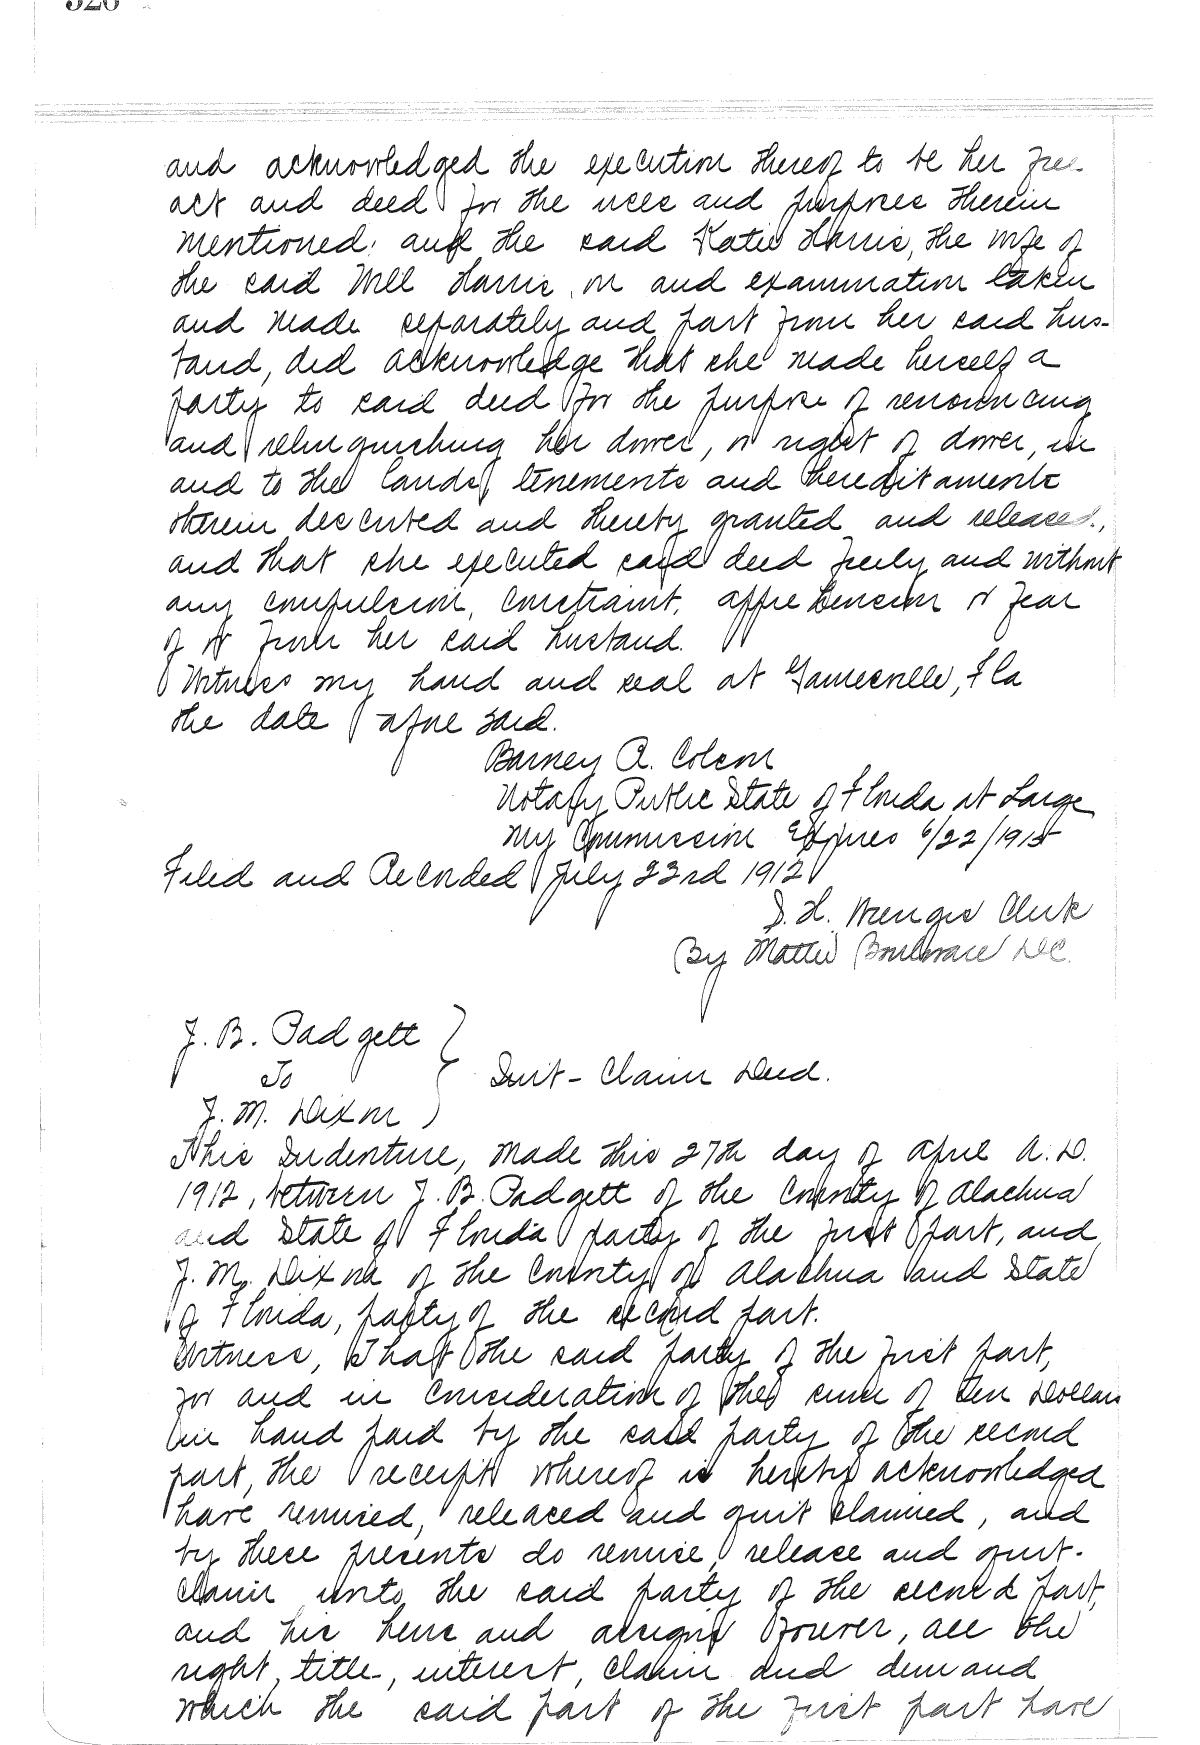 and acknowledged the execution thereof to be her free
act and deed for the uses and purposes therein
mentioned; and the said Katie Harris, the wife of
the said Will Harris, on and examination taken
and made separately and part from her said hus-
band, did acknowledge that she made herself a
party to said deed for the purpose of renouncing
and relinquishing her dower, or right of dower, in
and to the lands, tenements and hereditaments
therein described and thereby granted and released,
and that she executed said deed freely and without
any compulsion, constraint, apprehension or fear
of or from her said husband.
Witness my hand and seal at Gainesville, Fla
the date afore said.
Barney A. Colson
Notary Public State of Florida at Large
My Commission Expires 6/22/1915
Filed and Recorded July 23rd 1912
S. H. Wienges Clerk
By Mattie D.C.
J. B. Padgett
To
Quit-Claim Deed.
J. M. Dixon
This Indenture, Made this 27th day of April A.D.
1912, between J. B. Padgett of the County of Alachua
and State of Florida party of the first part, and
J. M. Dixon of the County of Alachua and State
of Florida, party of the second part.
Witness, That the said party of the first part,
for and in consideration of the sum of Ten Dollars
in hand paid by the said party of the second
part, the receipt whereof is hereby acknowledged
have remised, released and quit claimed, and
by these presents do remise, release and quit-
claim unto the said party of the second part,
and his heirs and assigns forever, all the
right, title, interest, claim and demand
which the said part of the first part have